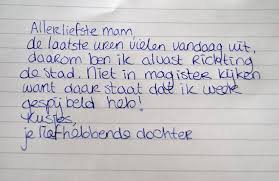 Allerliefste mam,
de laatste uren vielen vandaag uit,
daarom ben ik alvast richting
de stad. Niet in magister kijken
want daar staat dat ik weer
gespijbeld heb!
Kusjes,
je liefhebbende dochter